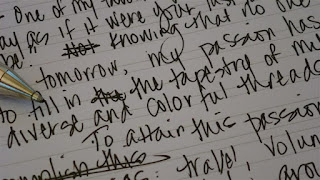 One of my
day as if it were your last
be. Not knowing that no one
tomorrow, my passion has
to fill in the the tapestry of my
diverse and colorful threads
To attain this passion
accomplish this
travel, volun